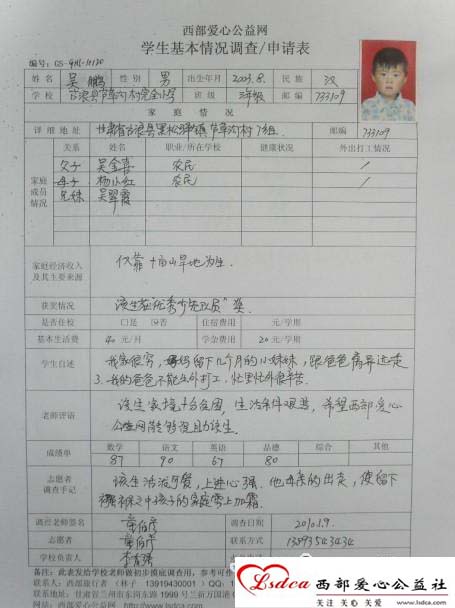 西部爱心公益网
学生基本情况调查/申请表
编号: GS-
姓名 吴鹏 性别 男 出生年月 2003.8. 民族 汉
学校 古浪县 班级 三年级 邮编 733109
家庭情况
详细地址 甘肃省古浪县黑松驿镇 村7组. 邮编 733109
关系 姓名 职业/所在学校 健康状况 外出打工情况
家庭成员情况
父子 吴金喜 农民 /
母子 杨小红 农民 /
兄妹 吴翠霞
家庭经济收入及其主要来源 仅靠十亩山旱地为生.
获奖情况 该生获"优秀少先队员"奖
是否住校 口是 口否 住宿费用 元/学期
基本生活费 40 元/月 学杂费用 20 元/学期
学生自述 我家很穷, 妈妈留下几个月的小妹妹, 跟爸爸离异远走
了. 我的爸爸不能出外打工, 忙里忙外很辛苦.
老师评语 该生家境十分贫困, 生活条件艰苦, 希望西部爱心
公益网能够资助该生.
成绩单 数学 语文 英语 品德 综合 其他
87 90 67 80
志愿者调查手记 该生活泼可爱, 上进心强. 他母亲的出走, 使留下
襁褓之中孩子的家庭雪上加霜.
调查老师签名 调查日期 2010.1.9.
志愿者 联系方式 13893543434
学校负责人
备注: 此表发给学校老师做初步摸底调查用, 参考可作
联系人: 西部旅行者 (林子 13919430001) QQ:
联系地址: 甘肃省兰州市东岗东路1999号兰新万国港
网址: http://www.lsdca.com
Lsdca 西部爱心公益社
关注 关心 关爱 http://www.lsdca.com